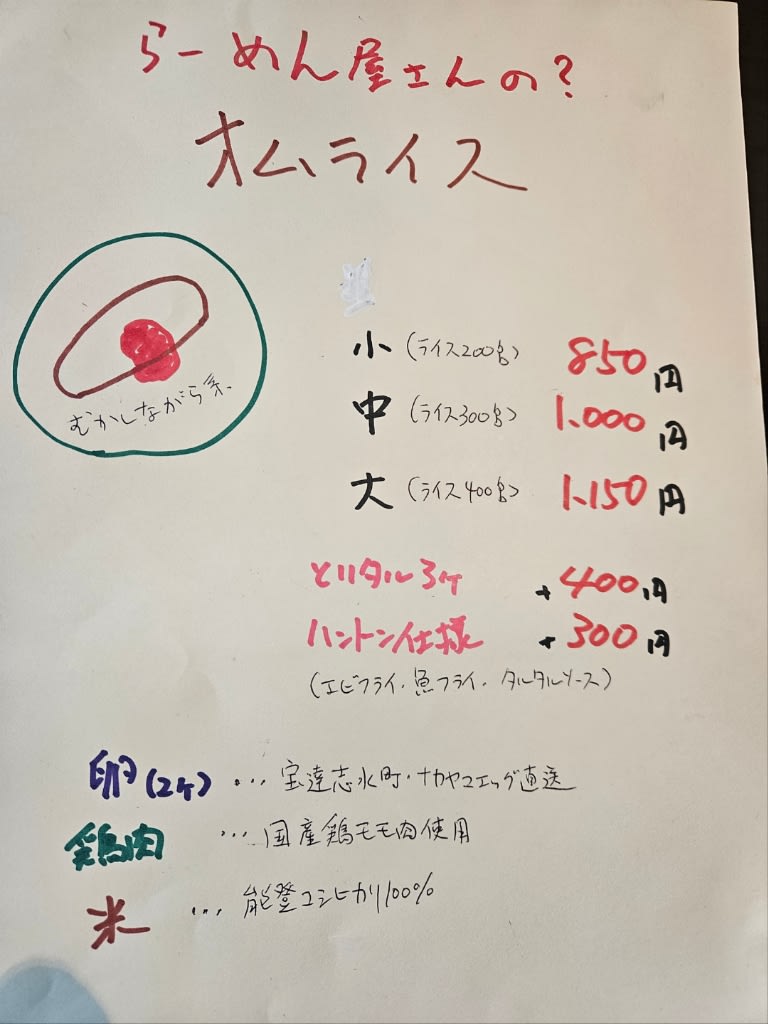 らーめん屋さんの?
オムライス
むかしながら系
小 (ライス200g) 850円
中 (ライス300g) 1.000円
大 (ライス400g) 1.150円
とりタル3ヶ +400円
ハントン仕様 +300円
(エビフライ・魚フライ・タルタルソース)
卵(2ヶ) ... 宝達志水町・ナカヤマエッグ直送
鶏肉 ... 国産鶏モモ肉使用
米 ... 能登コシヒカリ100%